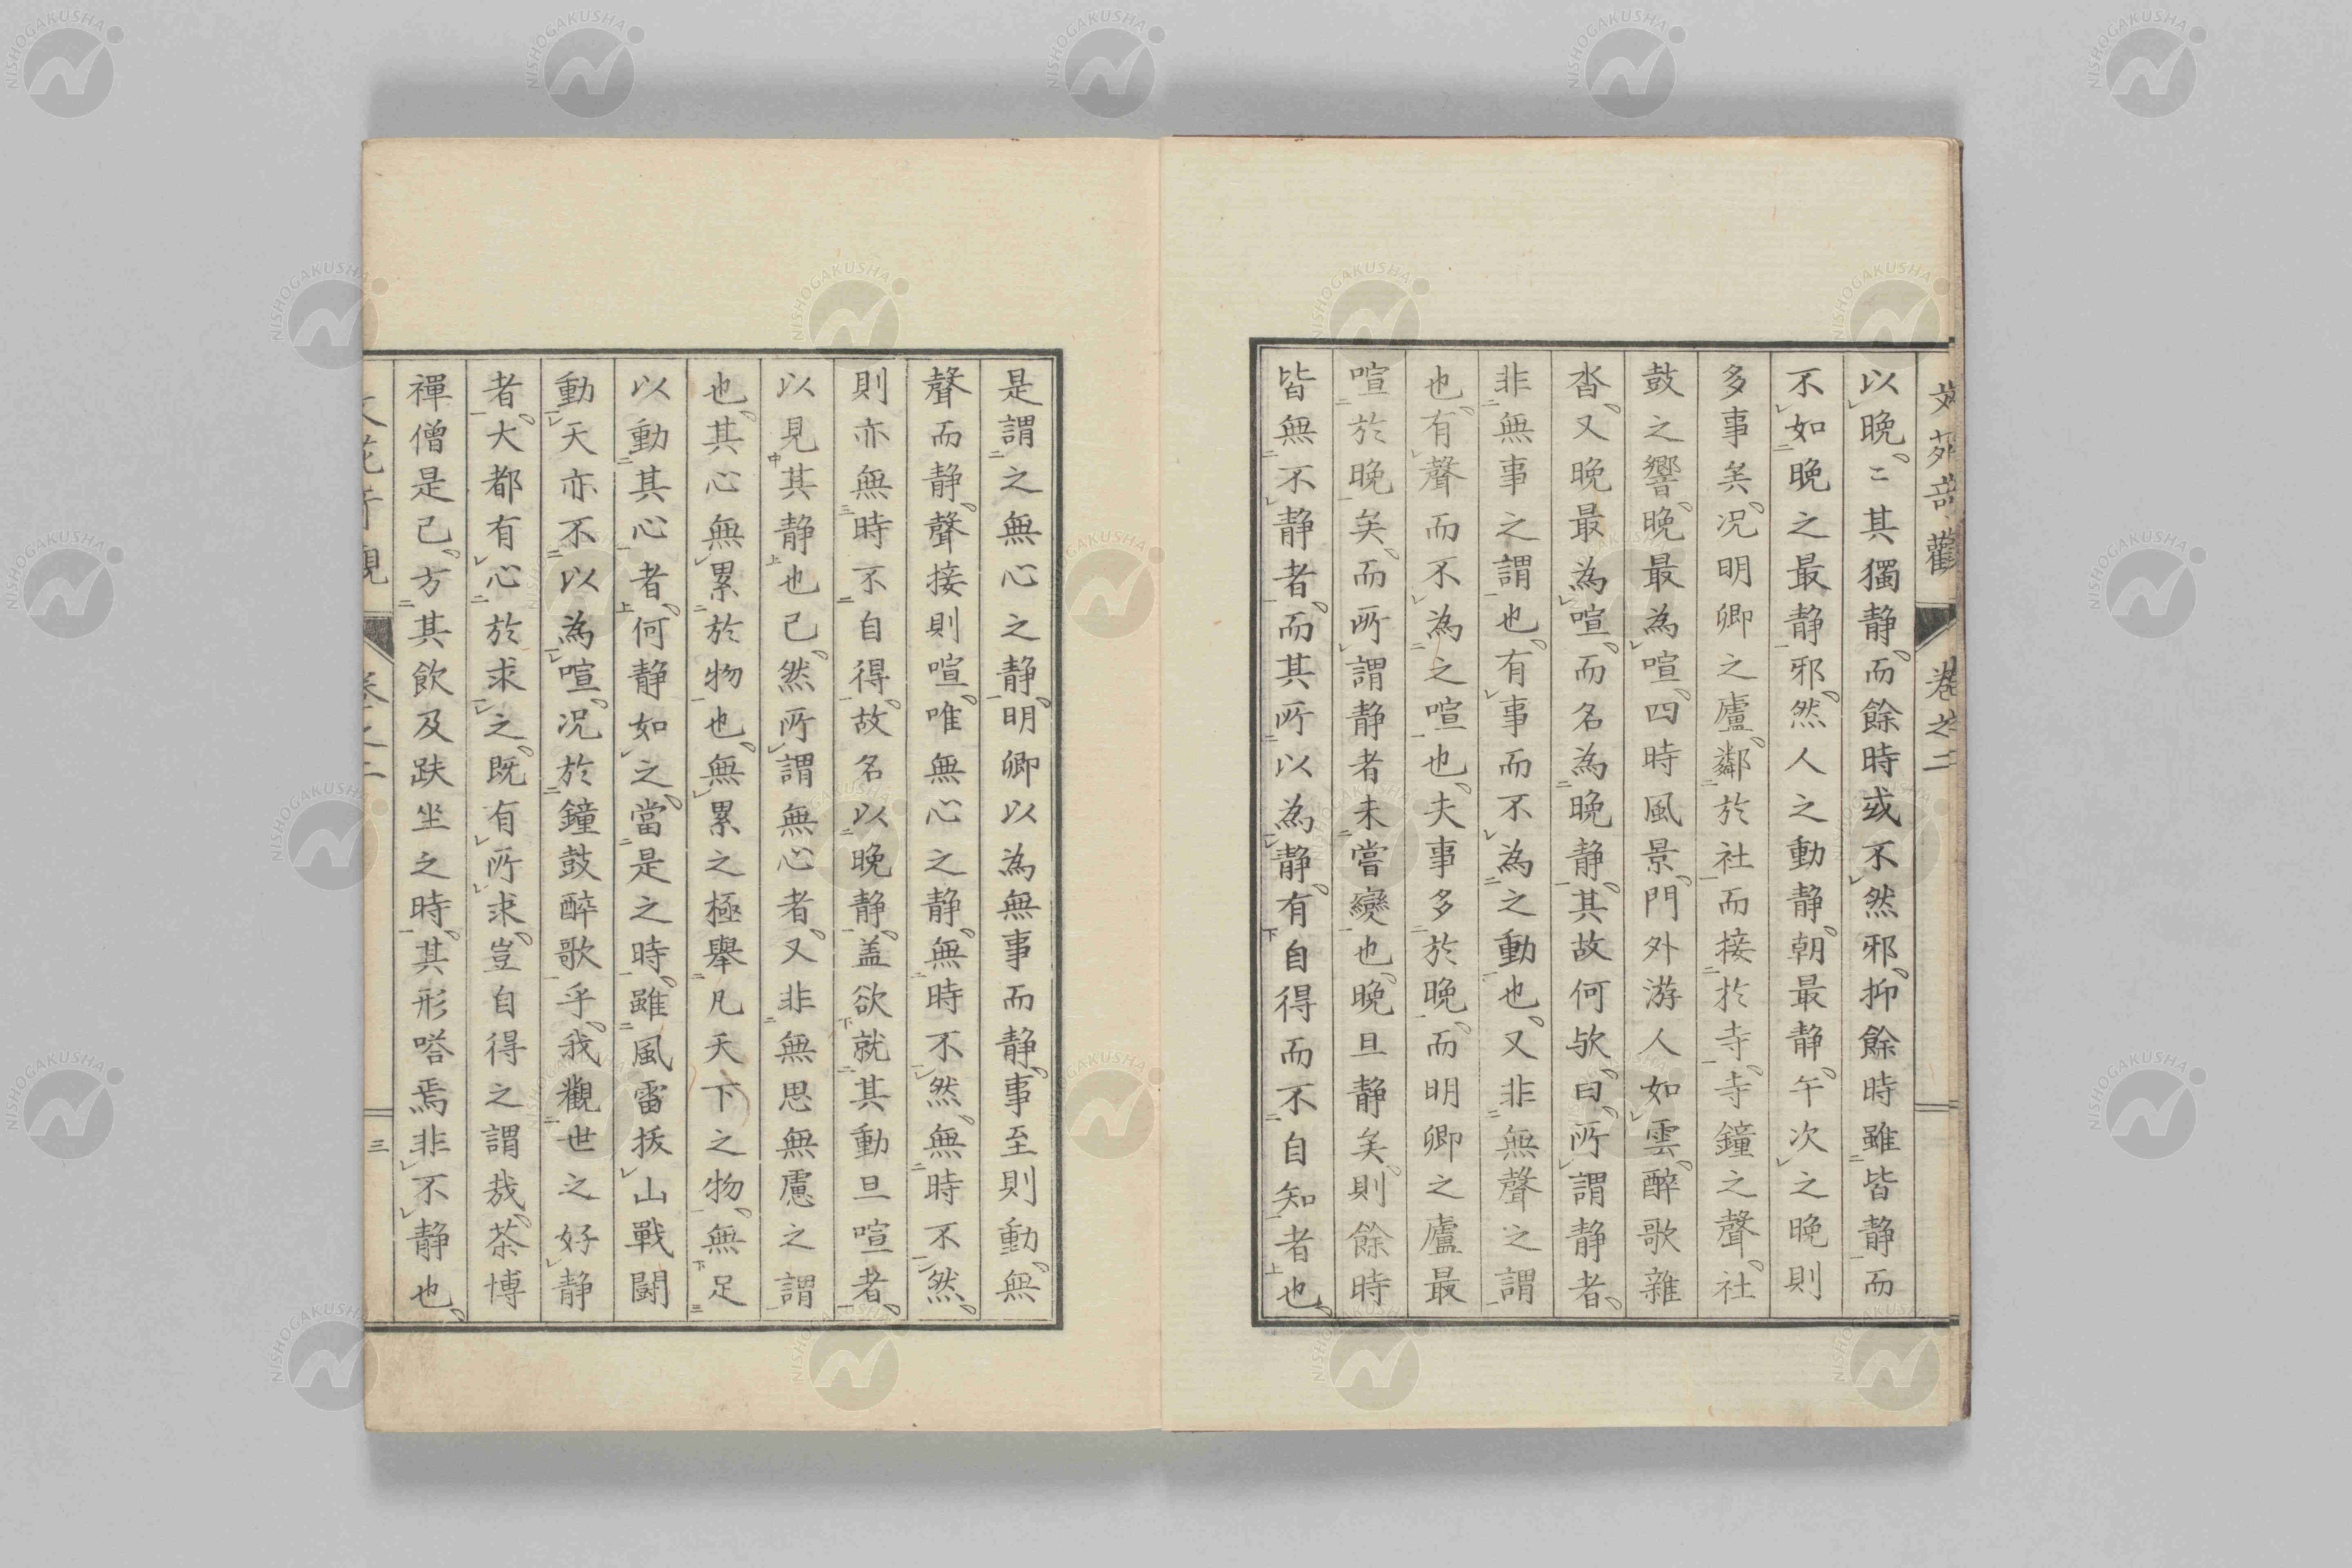 以晩〻其獨静而餘時或不然邪抑餘時雖皆静而
不如晩之最静邪然人之動静朝最静午次之晩則
多事矣况明卿之廬鄰於社而接於寺寺鐘之聲社
鼓之響晩最為喧四時風景門外游人如雲醉歌雜
沓又晩最為喧而名為晩静其故何欤曰所謂静者
非無事之謂也有事而不為之動也又非無聲之謂
也有聲而不為之喧也夫事多於晩而明卿之廬最
喧於晩矣而所謂静者未嘗變也晩旦静矣則餘時
皆無不静者而其所以為静有自得而不自知者也
是謂之無心之静明卿以為無事而静事至則動無
聲而静聲接則喧唯無心之静無時不然無時不然
則亦無時不自得故名以晩静盖欲就其動旦喧者
以見其静也已然所謂無心者又非無思無慮之謂
也其心無累於物也無累之極舉凡天下之物無足
以動其心者何静如之當是之時雖風雷拔山戰闘
動天亦不以為喧况於鐘鼓醉歌乎我觀世之好静
者大都有心於求之既有所求豈自得之謂哉茶博
禪僧是已方其飲及趺坐之時其形嗒焉非不静也
三